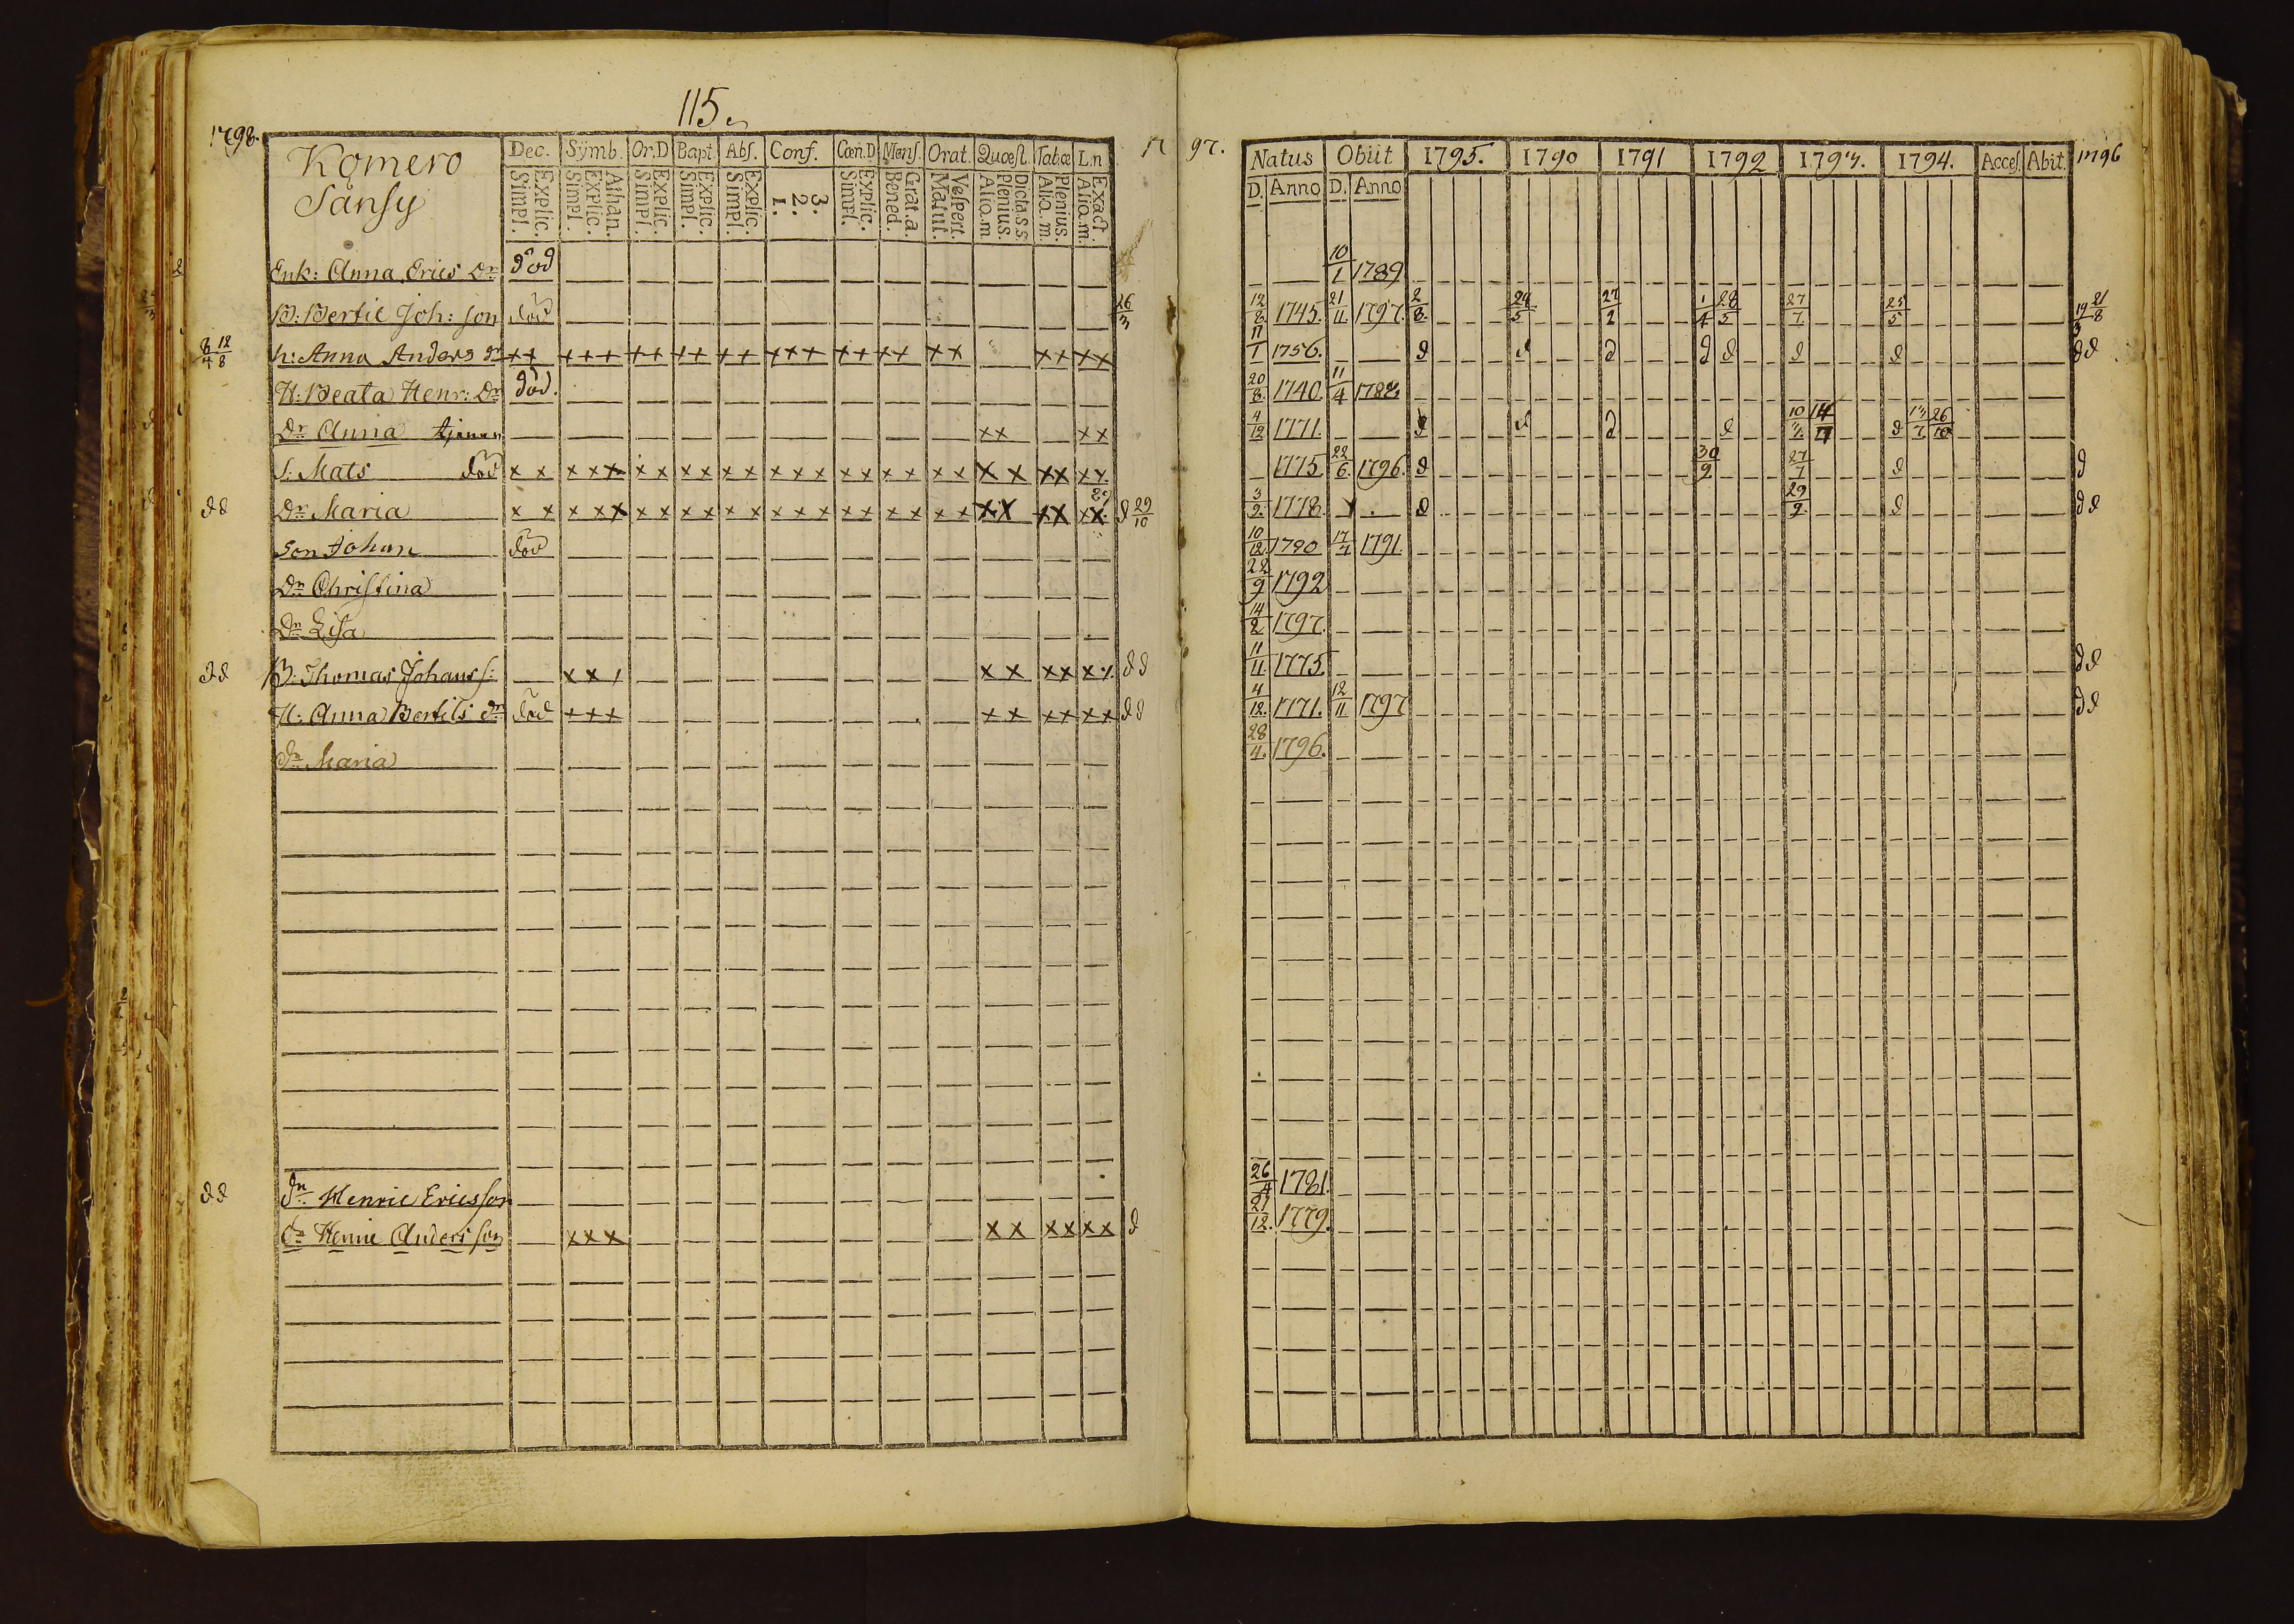 115.
1798.
Komero
Sansy
Dec. Symb. Or.D Bapt. Abs. Conf. Cœn.D Mens. Orat. Quœst. Tab.œ L.n.
Simpl. Explic. Simpl. Explic. Athan. Simpl. Explic. Simpl. Explic. Simpl. Explic. 1. 2. 3. Simpl. Explic. Bened. Grat.a. Matut. Vespert. Alio.m Plenius. Dicta.s.s. Alio.m. Plenius. Alio.m. Exact.
Enk: Anna Erics Dr död
B: Bertil Joh: son död 26/3
8/4 12/8 h: Anna Anders dr ++ +++ ++ ++ ++ +++ ++ ++ ×× ×× ××
H: Beata Henr: Dr död.
Dr Anna tjenar ×× ××
S: Mats död × × ××× ×× ×× ×× ××× ×× ×× ×× ×× ×× ××
dd Dr Maria × × ××× ×× ×× ×× ××× ×× ×× ×× ×× ×× ×× d 29/10
Son Johan död
Dr Christina
Dr Lisa
dd B: Thomas Johanss: ×× ×× ×× d d
H: Anna Bertils dr död +++ ×× ×× ×× d d
Dr Maria
dd dn Henric Ericsson
Dr Henric Andersson ××× ×× ×× ×× d
1797.
Natus Obiit 1795. 1790 1791 1792 1793. 1794. Acces. Abit. 1796
D. Anno D. Anno
10/1 1789
12/8 1745. 21/11 1797. 2/8 24/5 27/2 1/4 28/5 27/7 25/5 21/8
11/1 1756. d d d d d d d dd
20/8 1740. 11/4 1788
4/12 1771. d d d d 10/7 d 26/10
1775 22/6 1796. d 30/9 27/7 d d
3/2 1778. d 29/9 d dd
10/12 1790 17/7 1791.
22/9 1792
14/2 1797.
11/11 1775. dd
4/12 1771. 12/11 1797 dd
28/4 1796.
26/4 1781.
21/12. 1779.